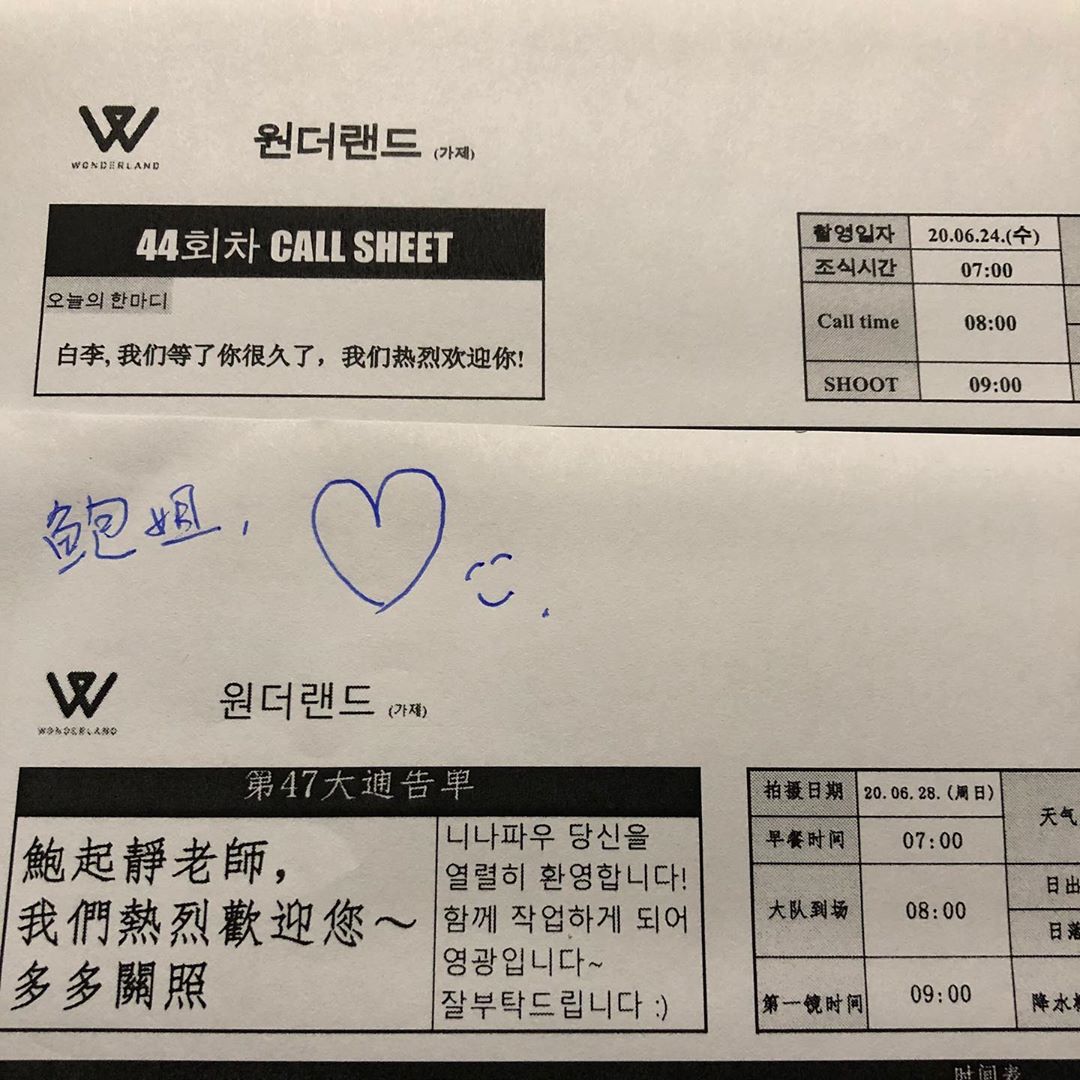 WONDERLAND
원더랜드 (가제)
44회차 CALL SHEET
오늘의 한마디
白李, 我们等了你很久了，我们热烈欢迎你!
촬영일자 20.06.24.(수)
조식시간 07:00
Call time 08:00
SHOOT 09:00
鲍姐,
WONDERLAND
원더랜드 (가제)
第47大通告单
鮑起靜老師,
我們熱烈歡迎您～
多多關照
니나파우 당신을
열렬히 환영합니다!
함께 작업하게 되어
영광입니다~
잘부탁드립니다 :)
拍摄日期 20.06.28.(周日)
早餐时间 07:00
大队到场 08:00
第一镜时间 09:00
天气
日出
日落
降水
时间表